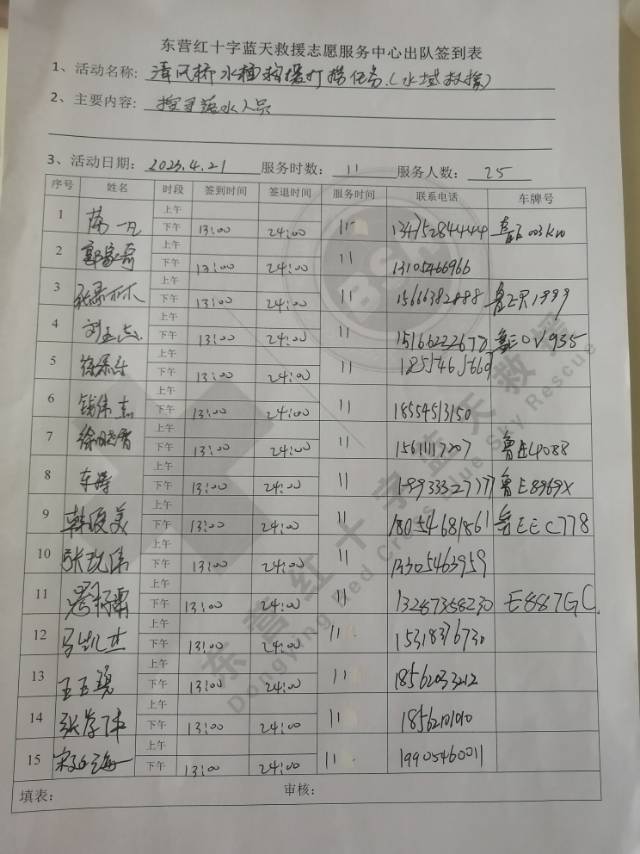 东营红十字蓝天救援志愿服务中心出队签到表
1、活动名称：清风桥水 打捞任务（水域救援）
2、主要内容：搜寻落水人员
3、活动日期：2023.4.21 服务时数：11 服务人数：25
序号 姓名 时段 签到时间 签退时间 服务时间 联系电话 车牌号
1 上午
下午 13:00 24:00 11
2 上午
下午 13:00 24:00 11 13105466966
3 上午
下午 13:00 24:00 11 15666382888
4 上午
下午 13:00 24:00 11
5 徐 上午
下午 13:00 24:00 11
6 钱伟志 上午
下午 13:00 24:00 11 18554513150
7 徐 上午
下午 13:00 24:00 11 鲁E4088
8 车 上午
下午 13:00 24:00 11 鲁E8969X
9 韩俊美 上午
下午 13:00 24:00 11 18054681861 鲁EEC778
10 张 伟 上午
下午 13:00 24:00 11 13305463959
11 上午
下午 13:00 24:00 11 13287358230 E887GC
12 马凯 上午
下午 13:00 24:00 11 15318376730
13 王玉 上午
下午 13:00 24:00 11 18562033212
14 张 伟 上午
下午 13:00 24:00 11
15 宋 海 上午
下午 13:00 24:00 11 19905460011
填表： 审核：
东营红十字蓝天救援
Dongying Red Cross Blue Sky Rescue